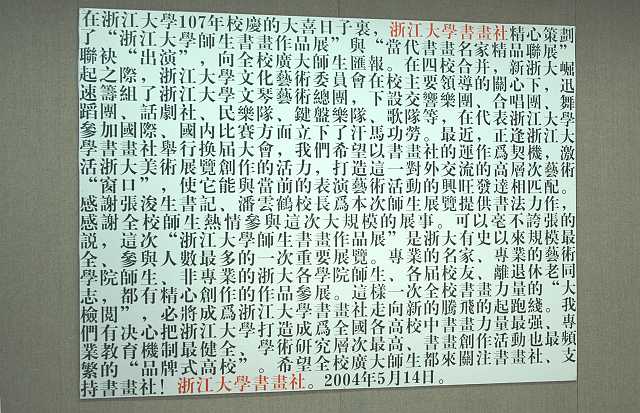 在浙江大學107年校慶的大喜日子裏，浙江大學書畫社精心策劃
了“浙江大學師生書畫作品展”與“當代書畫名家精品聯展”
聯袂“出演”，向全校廣大師生匯報。在四校合并，新浙大崛
起之際，浙江大學文化藝術委員會在校主要領導的關心下，迅
速籌組了浙江大學文琴藝術總團，下設交響樂團、合唱團、舞
蹈團、話劇社、民樂隊、鍵盤樂隊、歌隊等，在代表浙江大學
參加國際、國内比賽方面立下了汗馬功勞。最近，正逢浙江大
學書畫社舉行换届大會，我們希望以書畫社的運作爲契機，激
活浙大美術展覽創作的活力，打造這一對外交流的高層次藝術
“窗口”，使它能與當前的表演藝術活動的興旺發達相匹配。
感謝張浚生書記、潘雲鶴校長爲本次師生展覽提供書法力作，
感謝全校師生熱情參與這次大規模的展事。可以毫不誇張的
説，這次“浙江大學師生書畫作品展”是浙大有史以來規模最
全、參與人數最多的一次重要展覽。專業的名家、專業的藝術
學院師生、非專業的浙大各學院師生、各届校友、離退休老同
志，都有精心創作的作品參展。這樣一次全校書畫力量的“大
檢閲”，必將成爲浙江大學書畫社走向新的騰飛的起跑綫。我
們有决心把浙江大學打造成爲全國各高校中書畫力量最强、專
業教育機制最健全，學術研究層次最高、書畫創作活動也最頻
繁的“品牌式高校”。希望全校廣大師生都來關注書畫社、支
持書畫社！浙江大學書畫社。2004年5月14日。